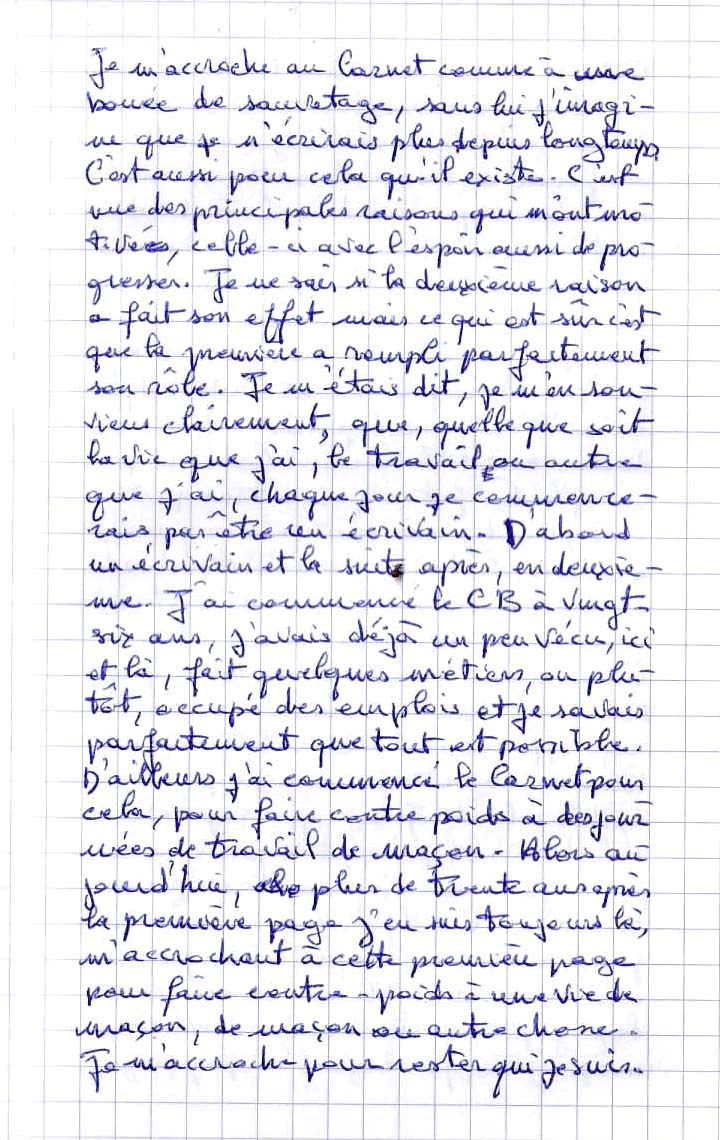 Je m'accroche au Carnet comme à une
bouée de sauvetage, sans lui j'imagi-
ne que je n'écrirais plus depuis longtemps.
C'est aussi pour cela qu'il existe. C'est
une des principales raisons qui m'ont mo-
tivées, celle-ci avec l'espoir aussi de pro-
gresser. Je ne sais si la deuxième raison
a fait son effet mais ce qui est sûr c'est
que la première a rempli parfaitement
son rôle. Je m'étais dit, je m'en sou-
viens clairement, que, quelle que soit
la vie que j'ai, le travail, ou autre
que j'ai, chaque jour je commence-
rais par être un écrivain. D'abord
un écrivain et la suite après, en deuxiè-
me. J'ai commencé le CB à vingt-
six ans, j'avais déjà un peu vécu, ici
et là, fait quelques métiers, ou plu-
tôt, occupé des emplois et je savais
parfaitement que tout est possible.
D'ailleurs j'ai commencé le Carnet pour
cela, pour faire contre poids à des jour-
nées de travail de maçon. Alors au-
jourd'hui, plus de trente ans après
la première page j'en suis toujours là,
m'accrochant à cette première page
pour faire contre-poids à une vie de
maçon, de maçon ou autre chose.
Je m'accroche pour rester qui je suis.